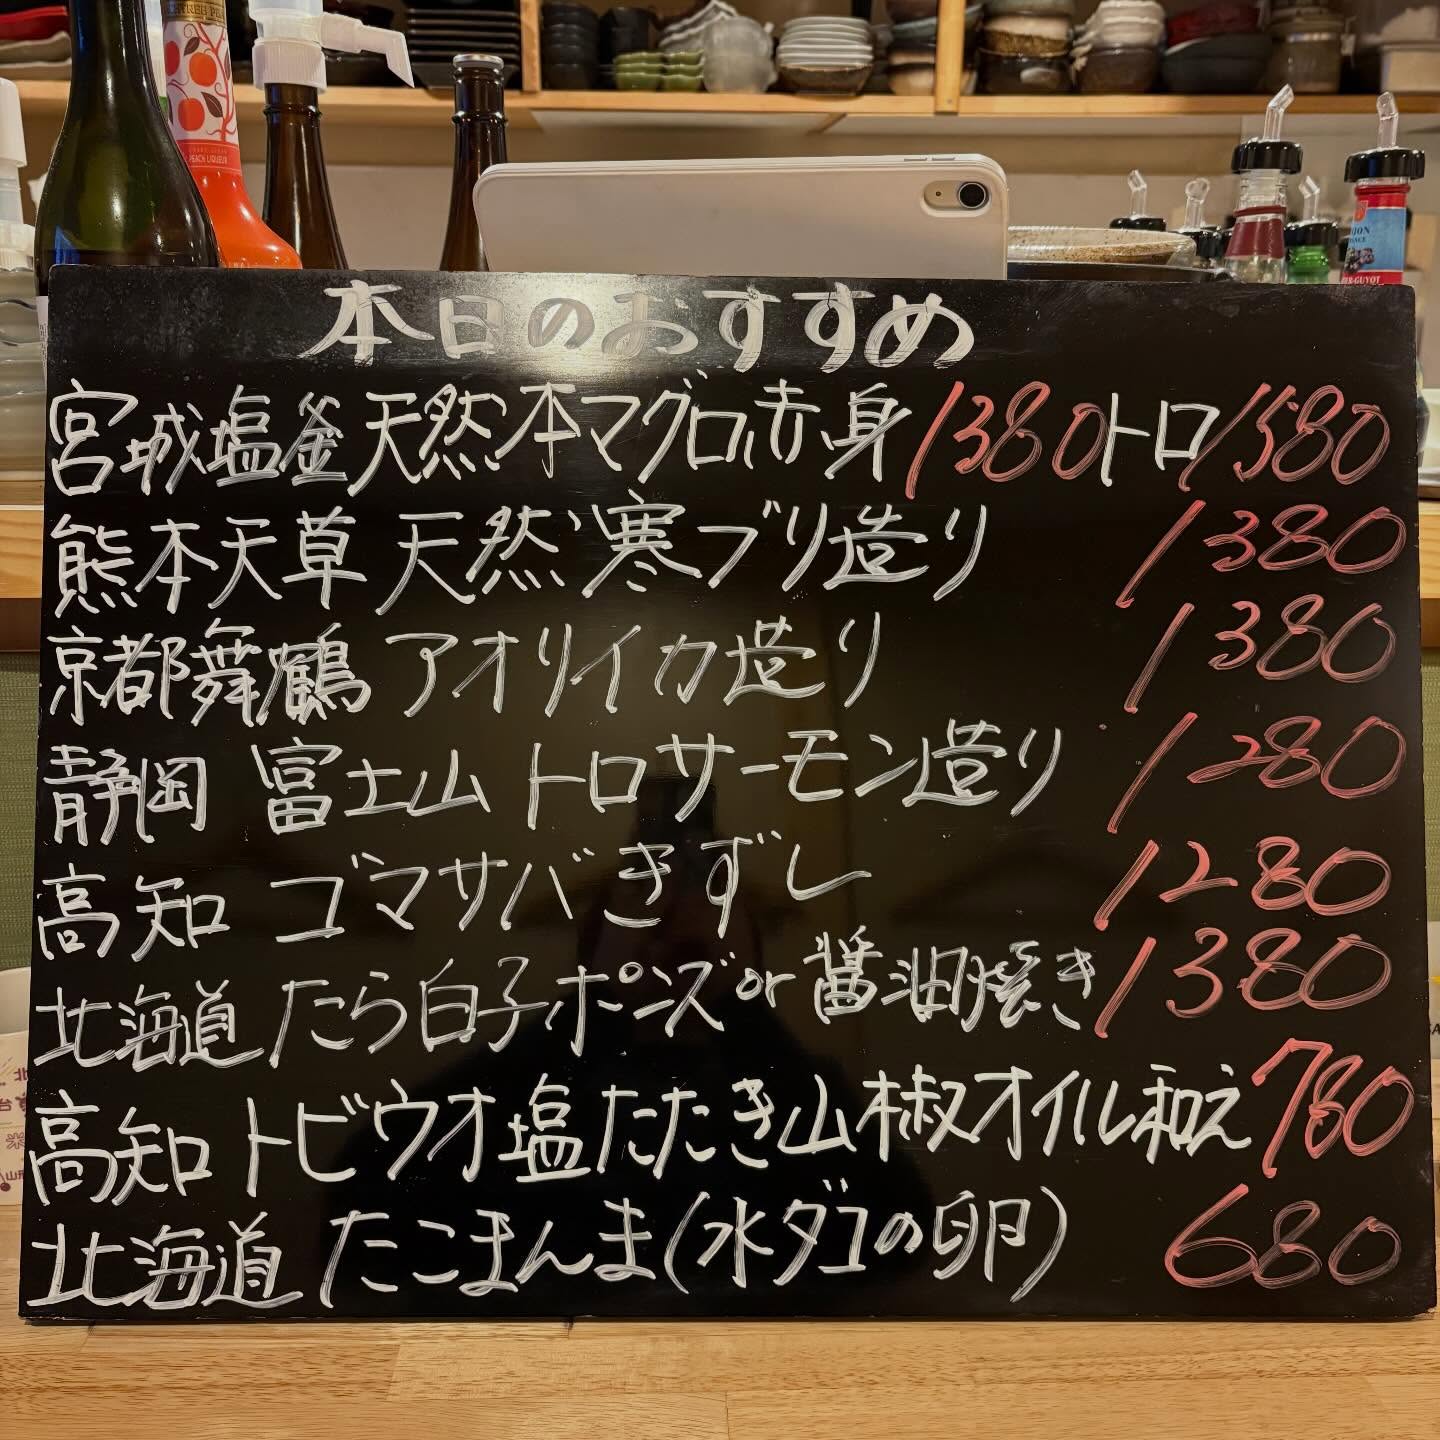 PEACH LIQUEUR
本日のおすすめ
宮城塩釜天然本マグロ赤身1380トロ1580
熊本天草 天然寒ブリ造り 1380
京都舞鶴 アオリイカ造り 1380
静岡 富士山 トロサーモン造り 1280
高知 ゴマサバきずし 1280
北海道 たら白子ポンズor醤油焼き 1380
高知 トビウオ塩たたき山椒オイル和え 780
北海道 たこまんま(水ダコの卵) 680